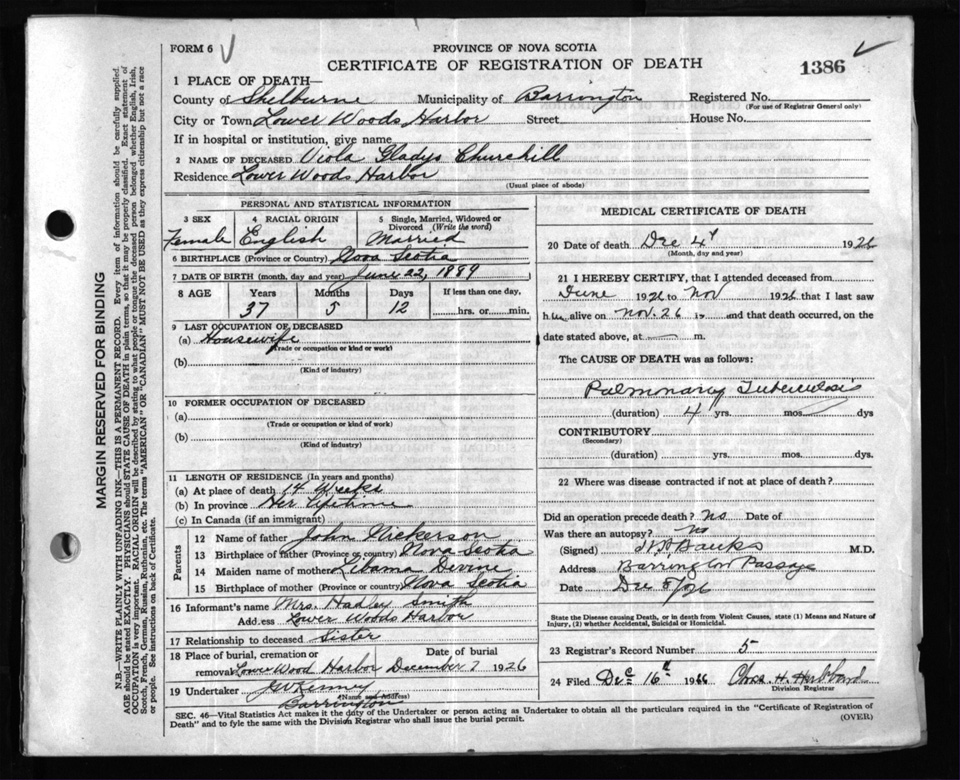 FORM 6 V
PROVINCE OF NOVA SCOTIA
CERTIFICATE OF REGISTRATION OF DEATH
1386
1 PLACE OF DEATH—
County of Shelburne Municipality of Barrington Registered No.
(For use of Registrar General only)
City or Town Lower Woods Harbor Street House No.
If in hospital or institution, give name
2 NAME OF DECEASED Viola Gladys Churchill
Residence Lower Woods Harbor
(Usual place of abode)
PERSONAL AND STATISTICAL INFORMATION
3 SEX 4 RACIAL ORIGIN 5 Single, Married, Widowed or Divorced (Write the word)
Female English Married
6 BIRTHPLACE (Province or Country) Nova Scotia
7 DATE OF BIRTH (month, day and year) June 22, 1889
8 AGE Years Months Days If less than one day,
37 5 12 hrs. or min.
9 LAST OCCUPATION OF DECEASED
(a) Housewife
(Trade or occupation or kind or work)
(b)
(Kind of industry)
10 FORMER OCCUPATION OF DECEASED
(a)
(Trade or occupation or kind of work)
(b)
(Kind of industry)
11 LENGTH OF RESIDENCE (In years and months)
(a) At place of death Weeks
(b) In province Her Lifetime
(c) In Canada (if an immigrant)
Parents
12 Name of father John Nickerson
13 Birthplace of father (Province or country) Nova Scotia
14 Maiden name of mother Devine
15 Birthplace of mother (Province or country) Nova Scotia
16 Informant's name Mrs. Hadley Smith
Address Lower Woods Harbor
17 Relationship to deceased Sister
18 Place of burial, cremation or removal Lower Wood Harbor Date of burial December 7 1926
19 Undertaker Kenney
(Name and Address)
Barrington
MEDICAL CERTIFICATE OF DEATH
20 Date of death Dec 4 1926
(Month, day and year)
21 I HEREBY CERTIFY, that I attended deceased from
June 1926 to Nov 1926 that I last saw
her alive on Nov. 26 19 and that death occurred, on the
date stated above, at m.
The CAUSE OF DEATH was as follows:
Pulmonary Tuberculosis
(duration) 4 yrs. mos. dys
CONTRIBUTORY
(Secondary)
(duration) yrs. mos. dys.
22 Where was disease contracted if not at place of death?
Did an operation precede death? No Date of
Was there an autopsy? No
(Signed) Banks M.D.
Address Barrington Passage
Date Dec 5/26
State the Disease causing Death, or in death from Violent Causes, state (1) Means and Nature of
Injury, (2) whether Accidental, Suicidal or Homicidal.
23 Registrar's Record Number 5
24 Filed Dec 16th 1926 Chas. H. Hubbard
Division Registrar
SEC. 46—Vital Statistics Act makes it the duty of the Undertaker or person acting as Undertaker to obtain all the particulars required in the "Certificate of Registration of
Death" and to fyle the same with the Division Registrar who shall issue the burial permit.
(OVER)
MARGIN RESERVED FOR BINDING
N.B.—WRITE PLAINLY WITH UNFADING INK—THIS IS A PERMANENT RECORD. Every item of information should be carefully supplied.
AGE should be stated EXACTLY. PHYSICIANS should STATE CAUSE OF DEATH in plain terms, so that it may be properly classified. Exact statement of
OCCUPATION is very important. RACIAL ORIGIN will be described by stating to what people or tongue the deceased person belonged whether English, Irish,
Scotch, French, German, Russian, Ruthenian, etc. The terms "AMERICAN" OR "CANADIAN" MUST NOT BE USED as they express citizenship but not a race
or people. See instructions on back of Certificate.